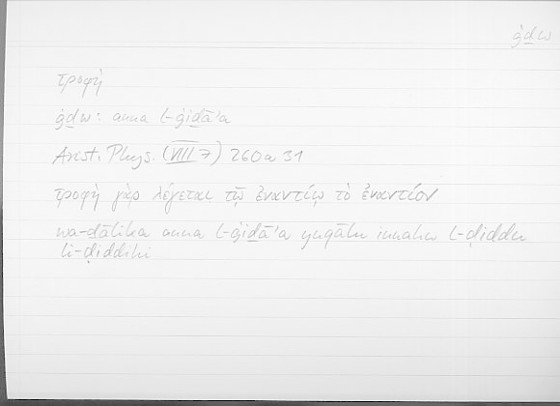 ġḏw
τροφή
ġḏw: anna l-ġiḏāʾa
Arist. Phys. (VIII 7) 260a31
τροφὴ γὰρ λέγεται τῷ ἐναντίῳ τὸ ἐναντίον
wa-ḏālika anna l-ġiḏāʾa yuqālu innahu l-ḍiddu
li-ḍiddihi